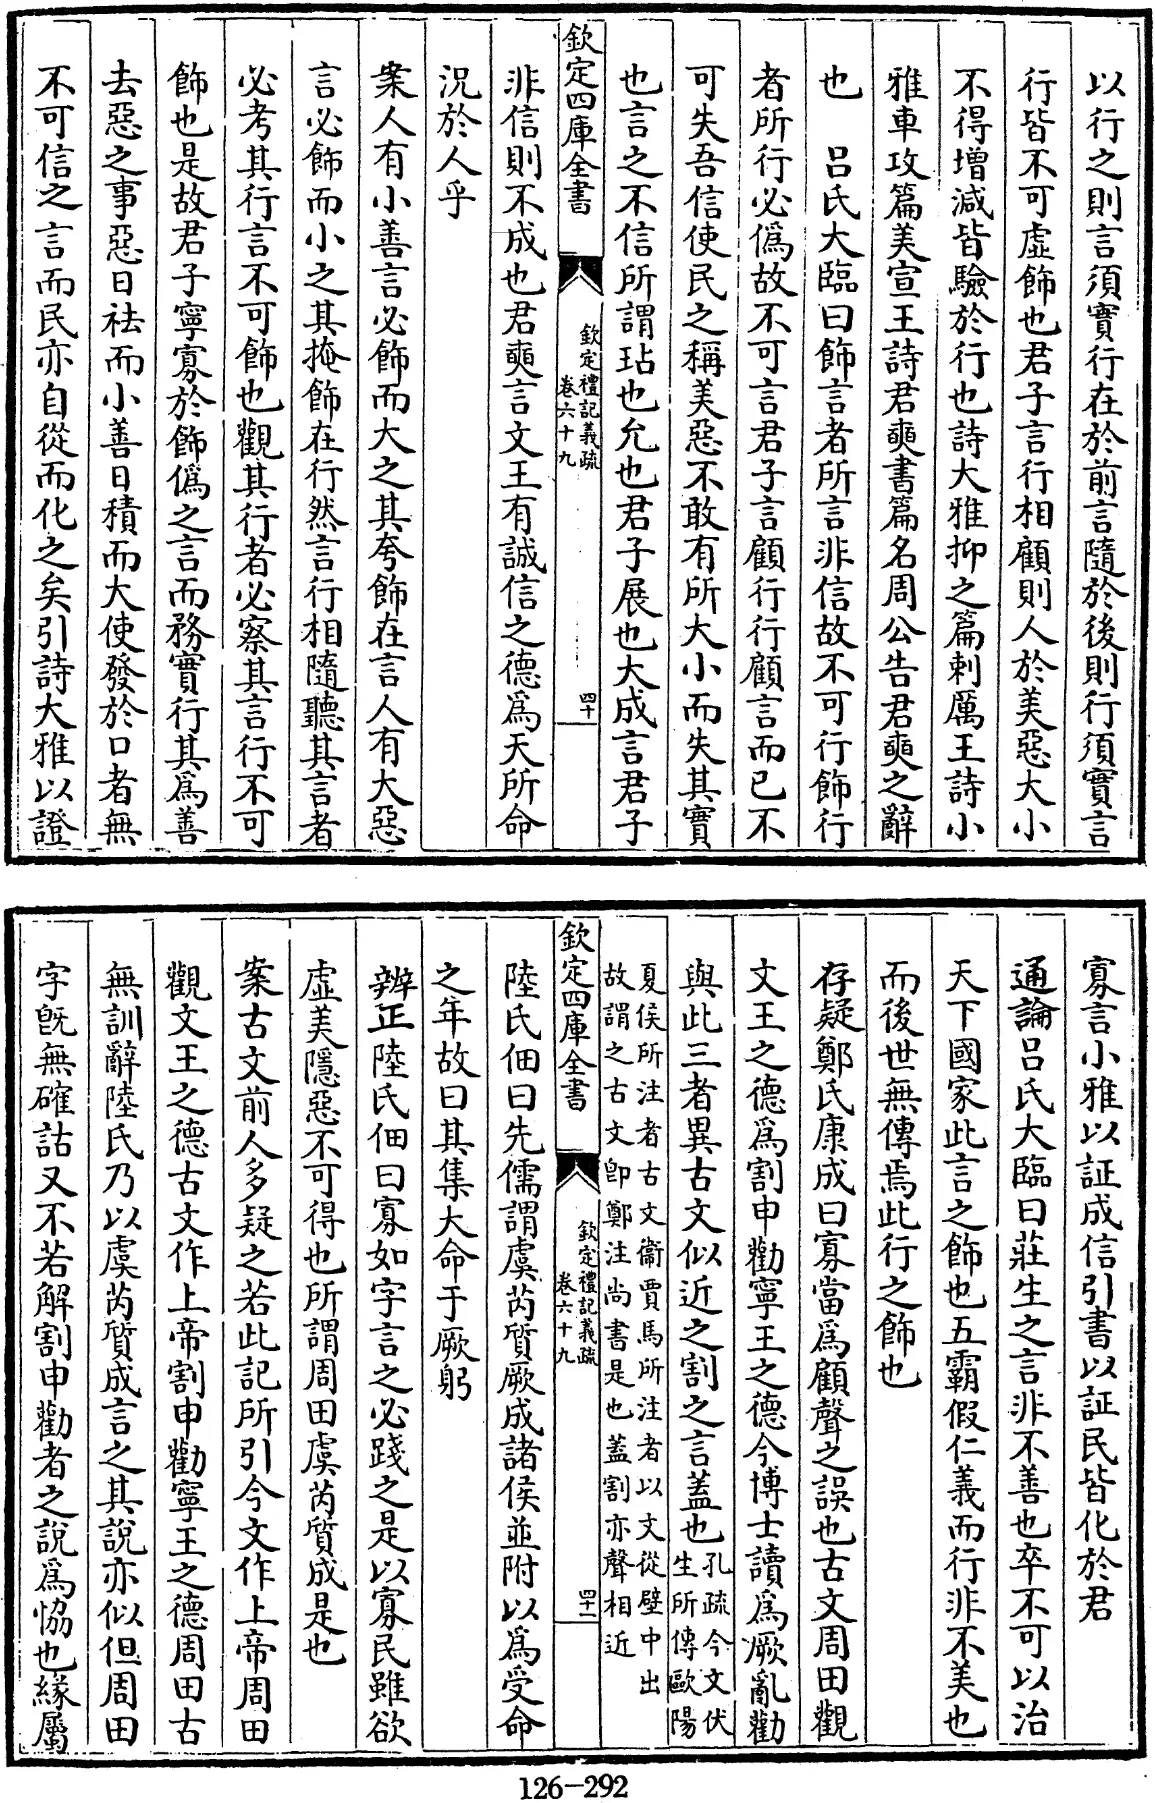 以行之則言須實行在於前言隨於後則行須實言
行皆不可虛飾也君子言行相顧則人於美惡大小
不得增減皆驗於行也詩大雅抑之篇刺厲王詩小
雅車攻篇美宣王詩君奭書篇名周公告君奭之辭
也　呂氏大臨曰飾言者所言非信故不可行飾行
者所行必僞故不可言君子言顧行行顧言而已不
可失吾信使民之稱美惡不敢有所大小而失其實
也言之不信所謂玷也允也君子展也大成言君子
欽定四庫全書
欽定禮記義疏
卷六十九
四十
非信則不成也君奭言文王有誠信之德爲天所命
況於人乎
案人有小善言必飾而大之其夸飾在言人有大惡
言必飾而小之其掩飾在行然言行相隨聽其言者
必考其行言不可飾也觀其行者必察其言行不可
飾也是故君子寧寡於飾僞之言而務實行其爲善
去惡之事惡日袪而小善日積而大使發於口者無
不可信之言而民亦自從而化之矣引詩大雅以證
寡言小雅以証成信引書以証民皆化於君
通論呂氏大臨曰莊生之言非不善也卒不可以治
天下國家此言之飾也五霸假仁義而行非不美也
而後世無傳焉此行之飾也
存疑鄭氏康成曰寡當爲顧聲之誤也古文周田觀
文王之德爲割申勸寧王之德今博士讀爲厥亂勸
與此三者異古文似近之割之言蓋也孔疏今文伏
生所傳歐陽
夏侯所注者古文衞賈馬所注者以文從壁中出
故謂之古文卽鄭注尚書是也蓋割亦聲相近
欽定四庫全書
欽定禮記義疏
卷六十九
四十一
陸氏佃曰先儒謂虞芮質厥成諸侯並附以爲受命
之年故曰其集大命于厥躬
辨正陸氏佃曰寡如字言之必踐之是以寡民雖欲
虛美隱惡不可得也所謂周田虞芮質成是也
案古文前人多疑之若此記所引今文作上帝周田
觀文王之德古文作上帝割申勸寧王之德周田古
無訓辭陸氏乃以虞芮質成言之其說亦似但周田
字旣無確詁又不若解割申勸者之說爲恊也緣屬
126-292